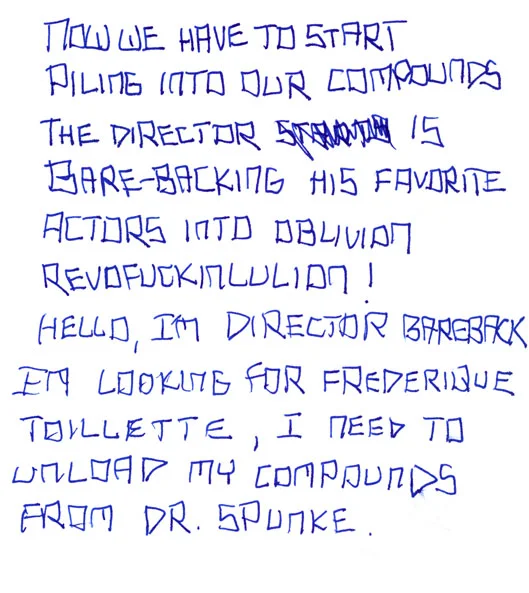 NOW WE HAVE TO START
PILING INTO OUR COMPOUNDS
THE DIRECTOR IS
BARE-BACKING HIS FAVORITE
ACTORS INTO OBLIVION
REVOFUCKINLULION!
HELLO, IM DIRECTOR BAREBACK
IM LOOKING FOR FREDERIQUE
TOILLETTE, I NEED TO
UNLOAD MY COMPOUNDS
FROM DR. SPUNKE.